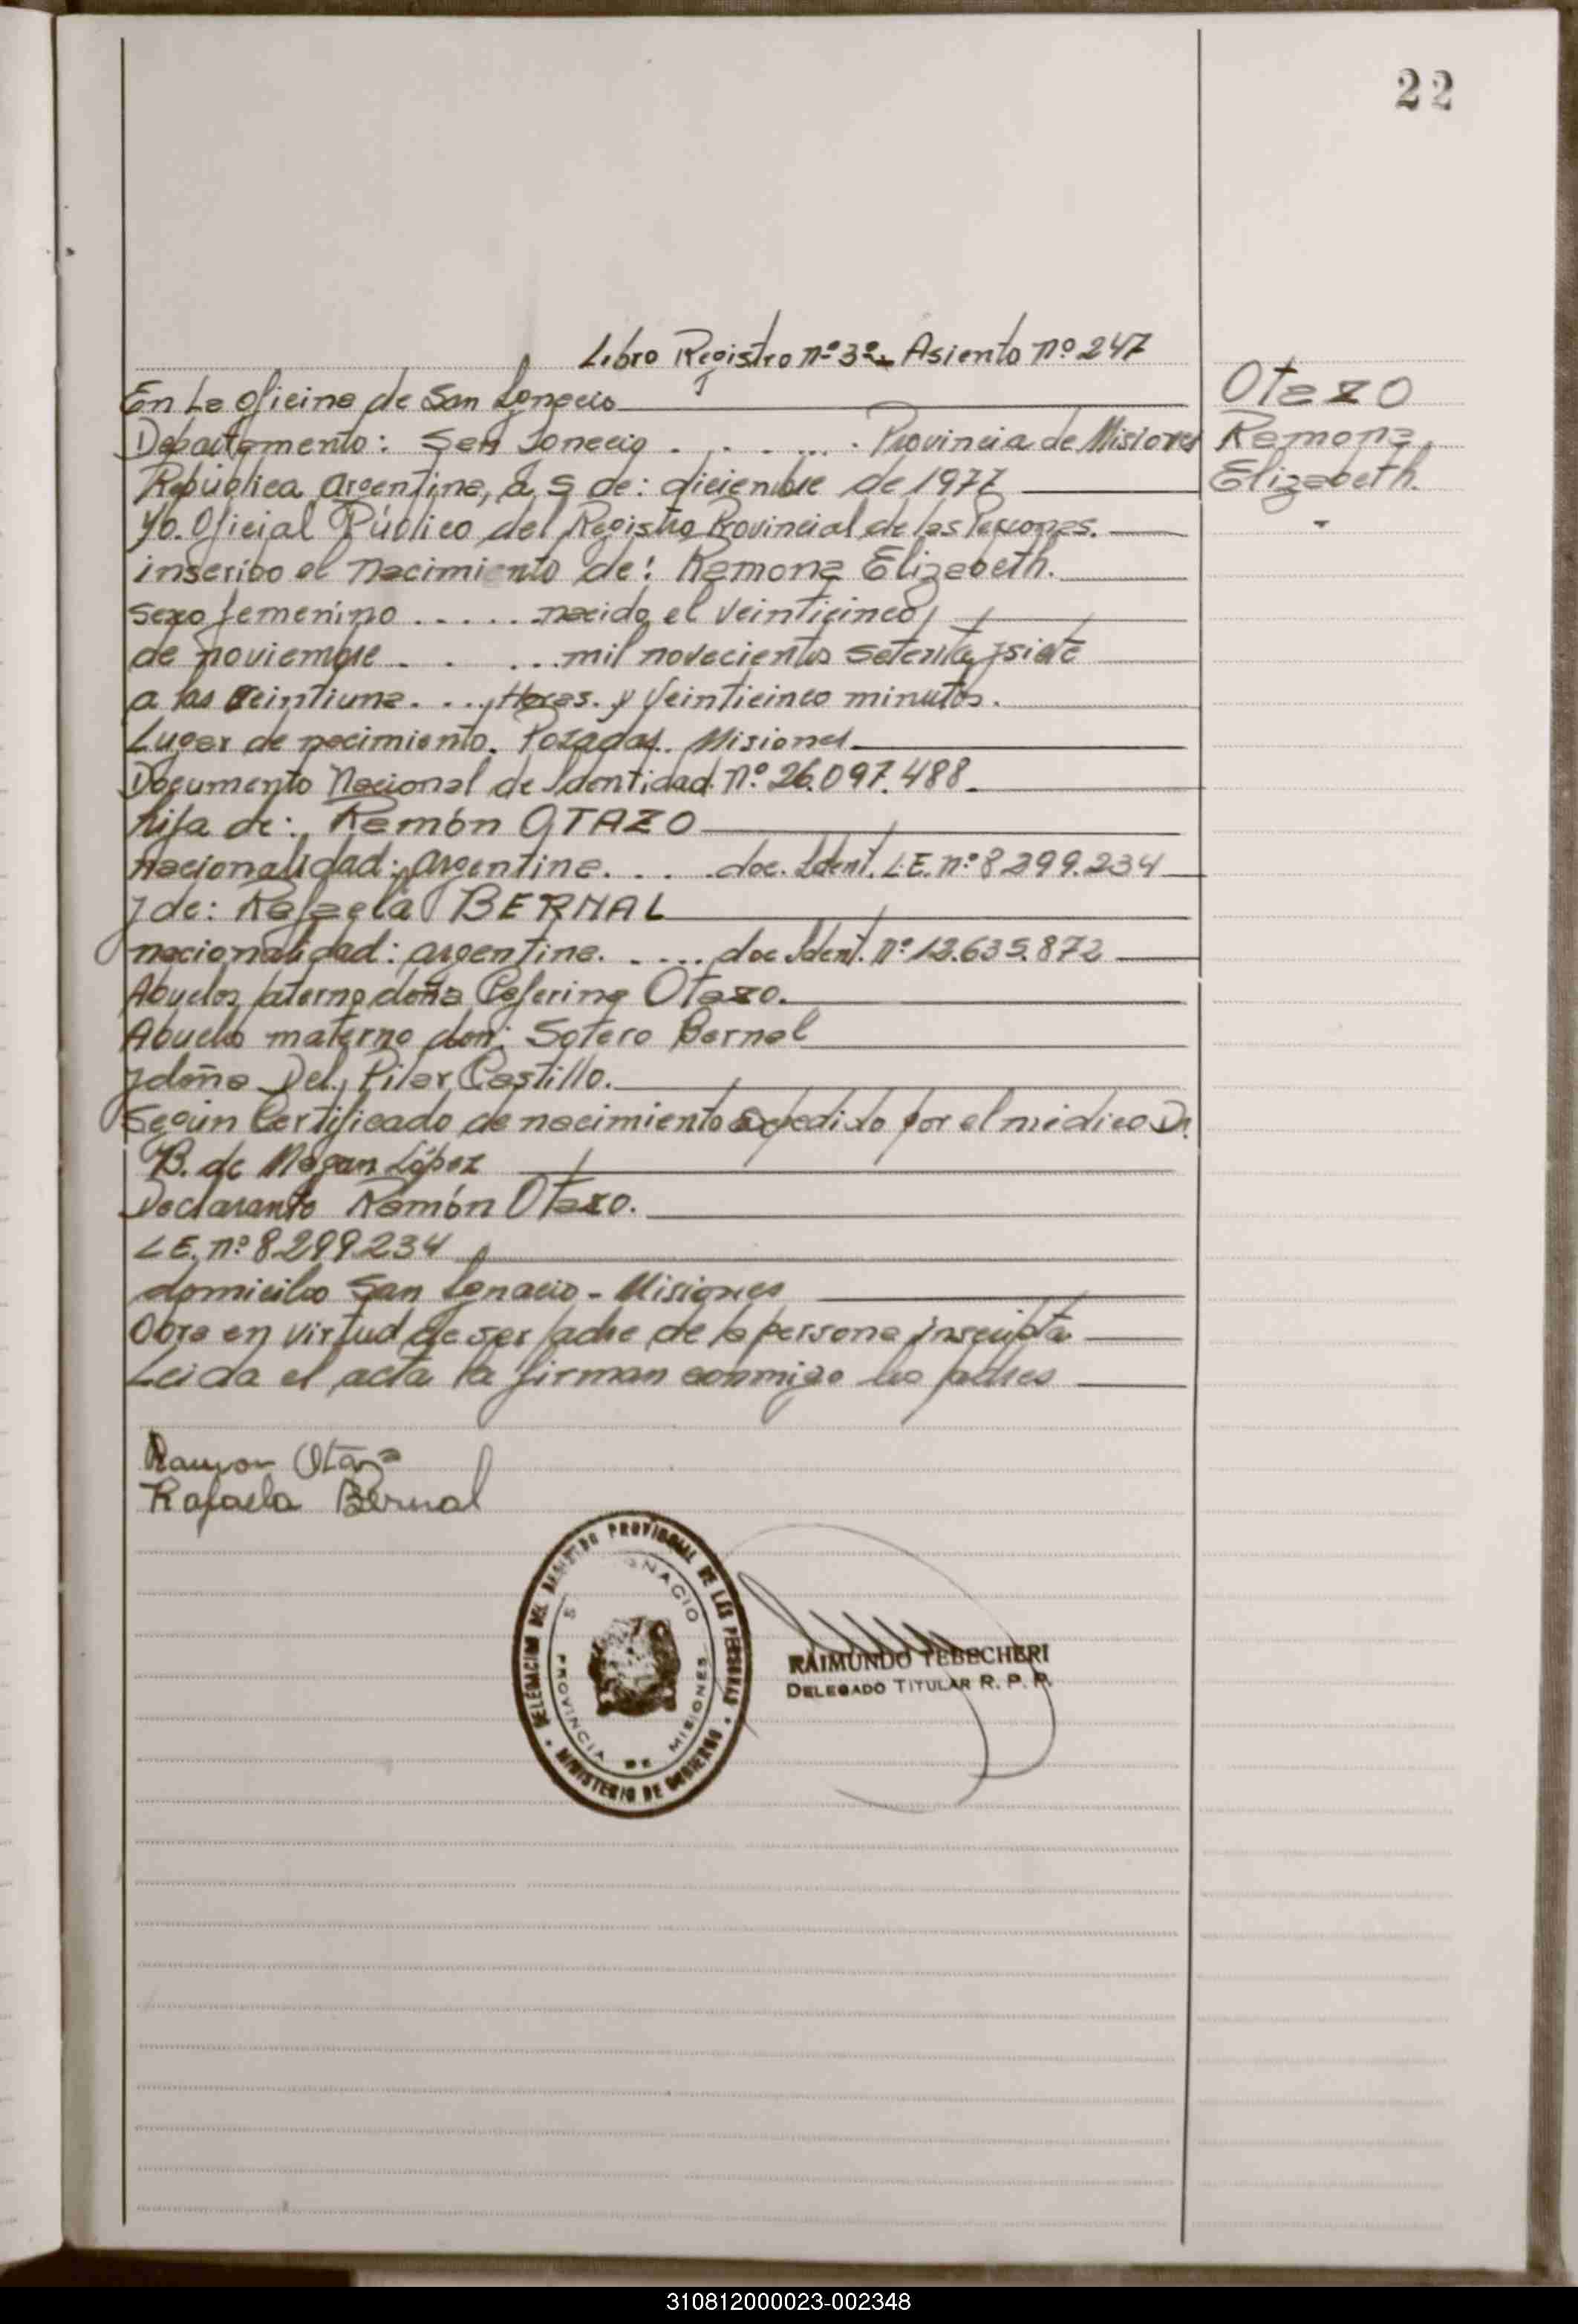 22
Libro Registro nº 3º Asiento nº 247
En La oficina de San Ignacio
Departamento: San Ignacio . . . . . . . Provincia de Misiones
República Argentina, a 5 de: diciembre de 1977
Yo. Oficial Público del Registro Provincial de las Personas.
inscribo el nacimiento de: Ramona Elizabeth.
sexo femenino . . . . . nacido el veinticinco
de noviembre . . . . . mil novecientos setenta y siete
a las veintiuna. . . . Horas. y veinticinco minutos.
Lugar de nacimiento. Posadas. Misiones
Documento Nacional de Identidad nº. 26.097.488.
hija de: Ramón OTAZO
nacionalidad: argentina. . . . . doc. Ident. L.E. nº 8299.234
y de: Rafaela BERNAL
nacionalidad: argentina. . . . . doc Ident. nº 12.635.872
Abuelos paterno doña Ceferina Otazo.
Abuelo materno don: Sotero Bernal
y doña Del Pilar Castillo.
Según Certificado de nacimiento expedido por el médico Dr.
B. de Magan López
Declarante Ramón Otazo.
L E. nº 8299234
domicilio San Ignacio - Misiones
Obra en virtud de ser padre de la persona inscripta
Leida el acta la firman conmigo los padres
Otazo
Ramona
Elizabeth.
Ramon Otazo
Rafaela Bernal
DELEGACION DEL REGISTRO PROVINCIAL DE LAS PERSONAS
MINISTERIO DE GOBIERNO
S IGNACIO
PROVINCIA DE MISIONES
RAIMUNDO TEBECHERI
DELEGADO TITULAR R. P. P.
310812000023-002348